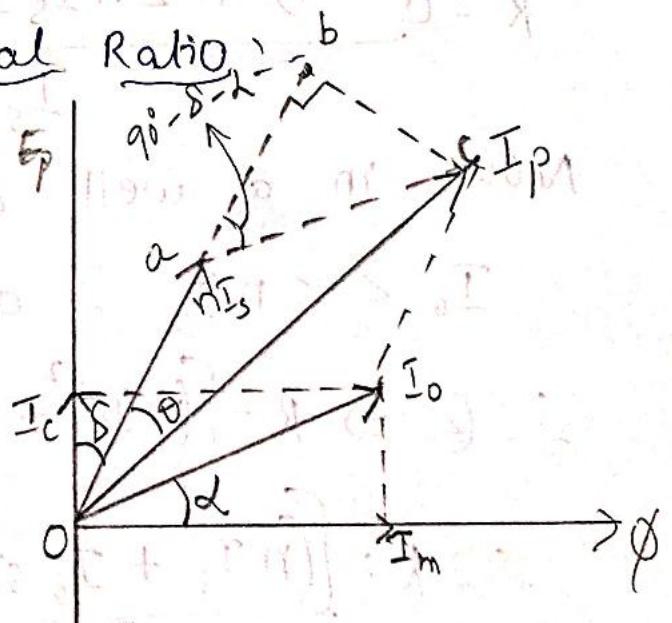 al Ratio
b
90°-δ-α
Ep
c Ip
a
nIs
Ic
Io
δ
θ
α
O
Im
φ